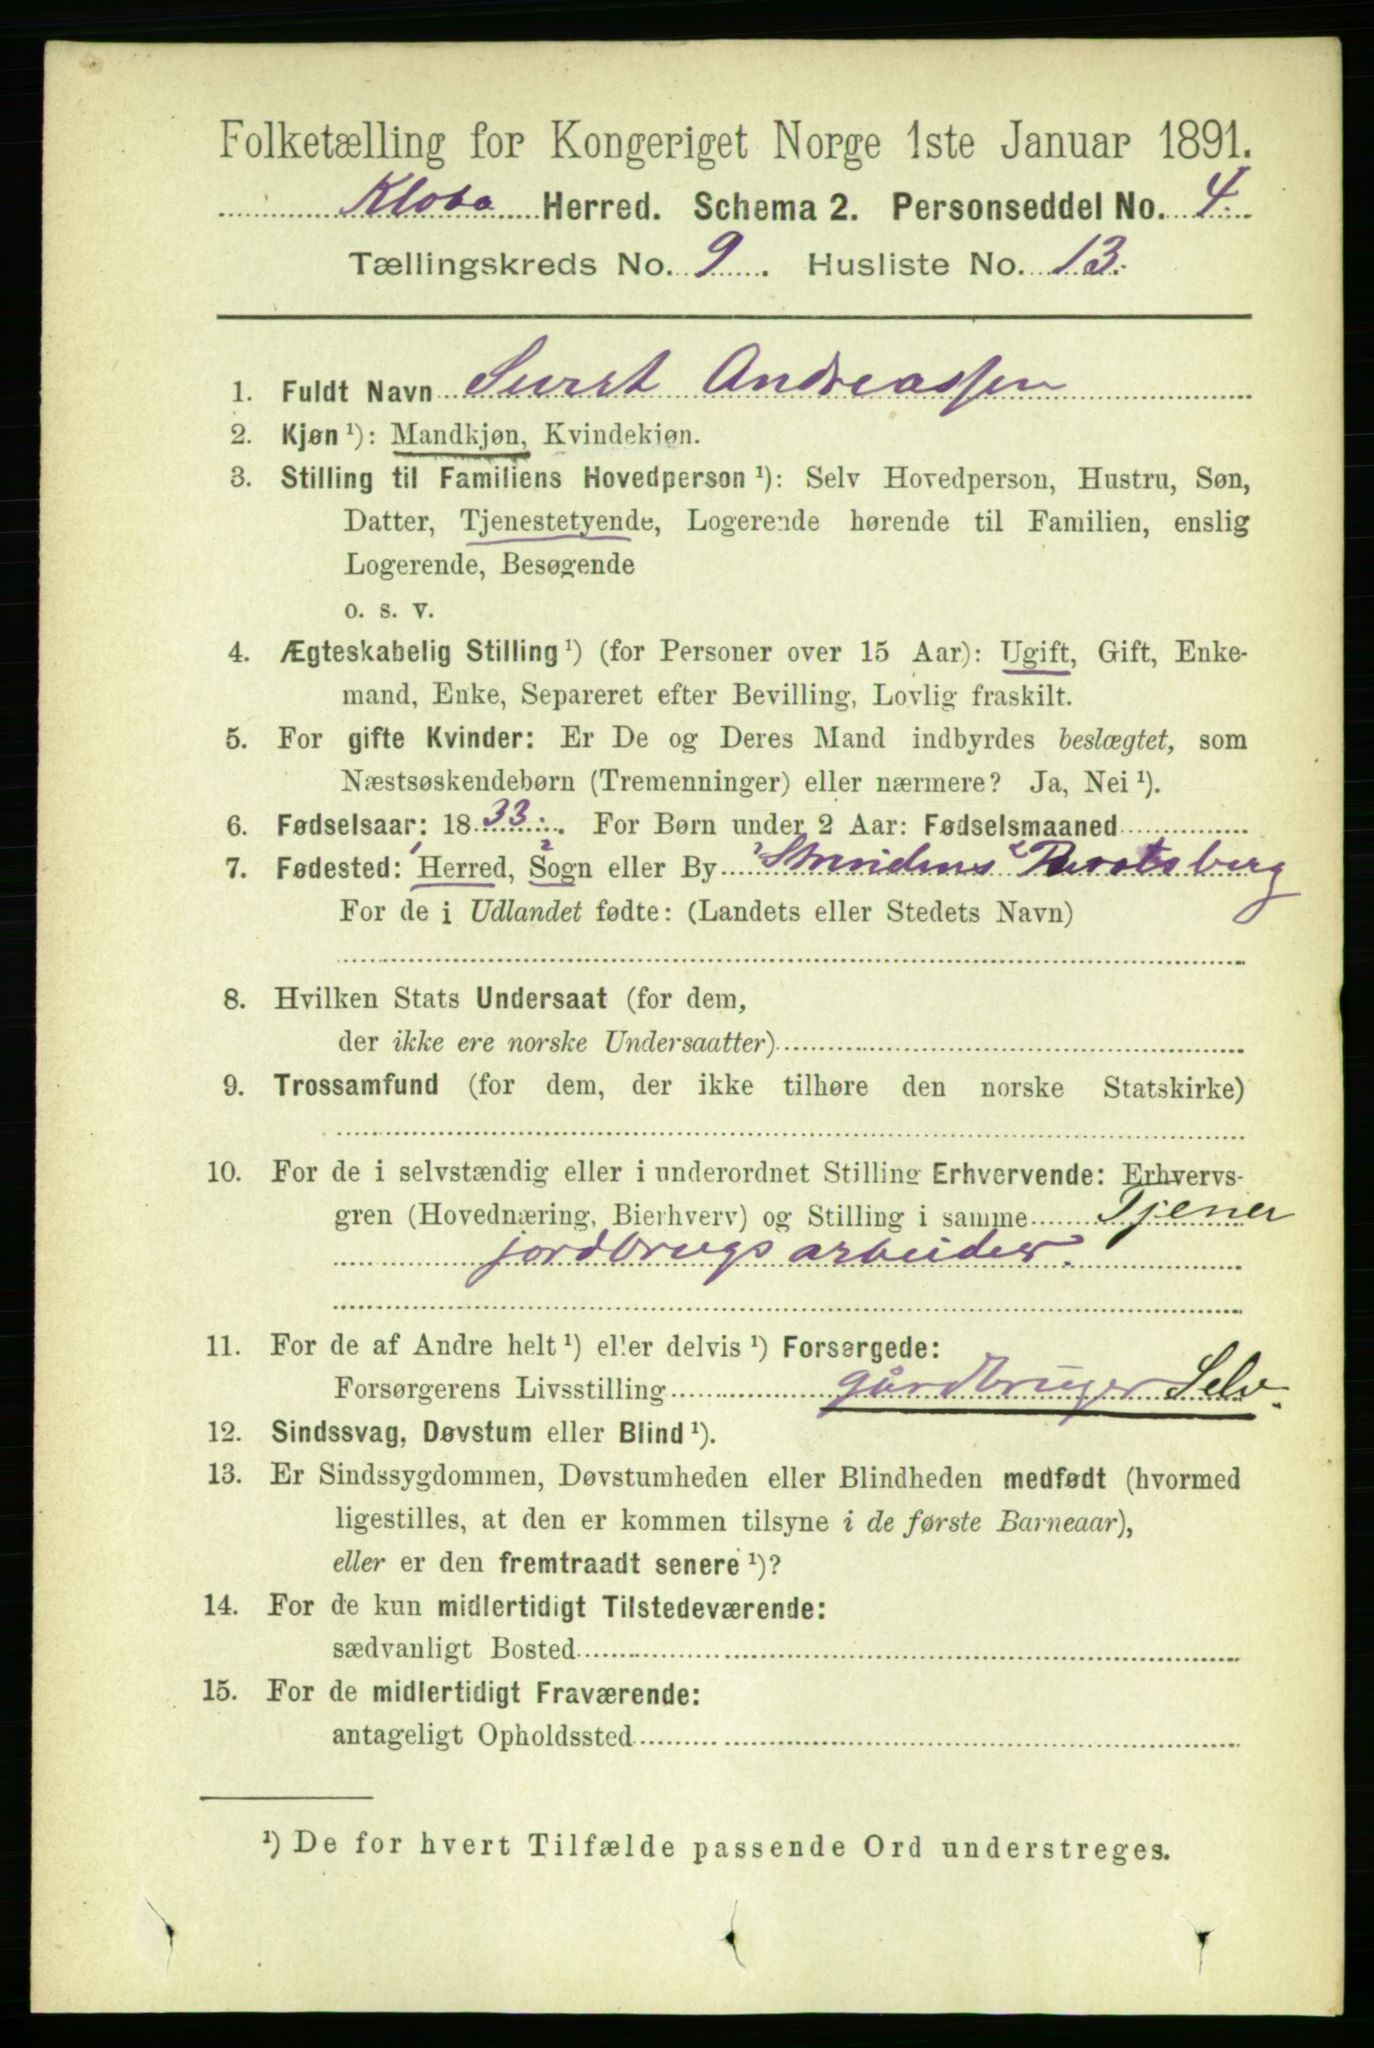 Folketælling for Kongeriget Norge 1ste Januar 1891.
Klobo Herred. Schema 2. Personseddel No. 4.
Tællingskreds No. 9. Husliste No. 13.
1. Fuldt Navn Andreassen
2. Kjøn ¹): Mandkjøn, Kvindekjøn.
3. Stilling til Familiens Hovedperson ¹): Selv Hovedperson, Hustru, Søn,
Datter, Tjenestetyende, Logerende hørende til Familien, enslig
Logerende, Besøgende
o. s. v.
4. Ægteskabelig Stilling ¹) (for Personer over 15 Aar): Ugift, Gift, Enke-
mand, Enke, Separeret efter Bevilling, Lovlig fraskilt.
5. For gifte Kvinder: Er De og Deres Mand indbyrdes beslægtet, som
Næstsøskendebørn (Tremenninger) eller nærmere? Ja, Nei ¹).
6. Fødselsaar: 1833. For Børn under 2 Aar: Fødselsmaaned
7. Fødested: ¹Herred, ²Sogn eller By ¹Strindens ²
For de i Udlandet fødte: (Landets eller Stedets Navn)
8. Hvilken Stats Undersaat (for dem,
der ikke ere norske Undersaatter)
9. Trossamfund (for dem, der ikke tilhøre den norske Statskirke)
10. For de i selvstændig eller i underordnet Stilling Erhvervende: Erhvervs-
gren (Hovednæring, Bierhverv) og Stilling i samme Tjener
jordbrugsarbeider.
11. For de af Andre helt ¹) eller delvis ¹) Forsørgede:
Forsørgerens Livsstilling gårdbruger Selv.
12. Sindssvag, Døvstum eller Blind ¹).
13. Er Sindssygdommen, Døvstumheden eller Blindheden medfødt (hvormed
ligestilles, at den er kommen tilsyne i de første Barneaar),
eller er den fremtraadt senere ¹)?
14. For de kun midlertidigt Tilstedeværende:
sædvanligt Bosted
15. For de midlertidigt Fraværende:
antageligt Opholdssted
¹) De for hvert Tilfælde passende Ord understreges.